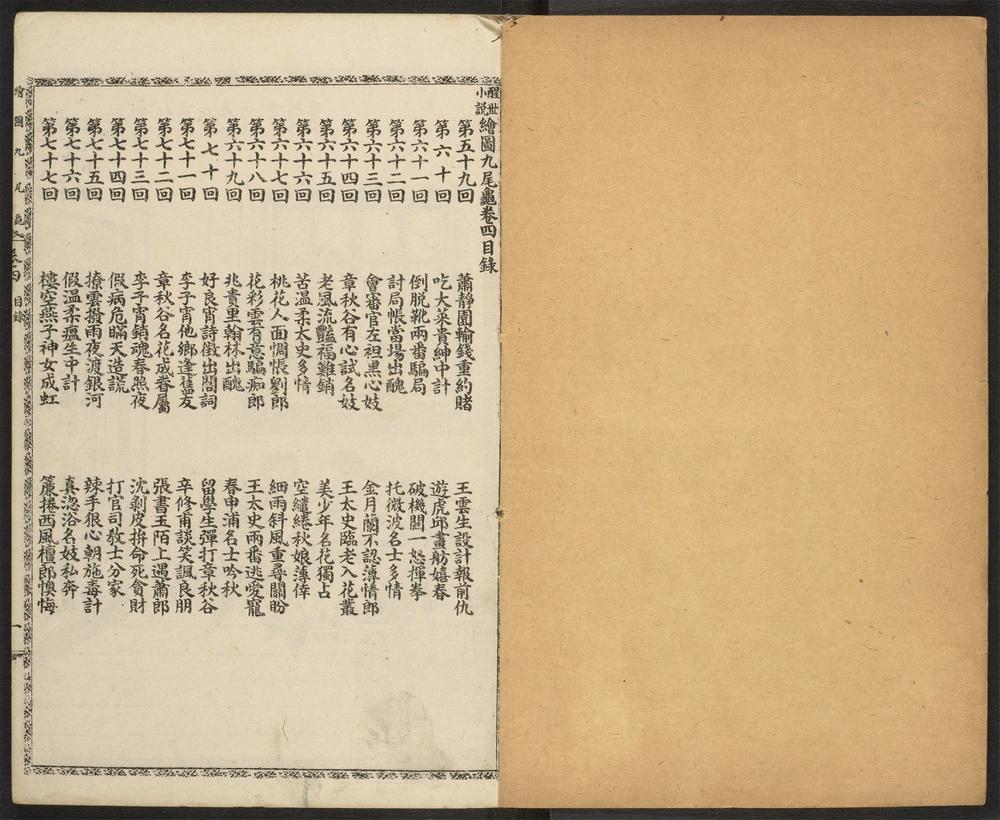 醒世小說繪圖九尾龜卷四目錄
第五十九回 蕭靜園輸錢重約賭 王雲生設計報前仇
第六十回 吃大菜貴紳中計 遊虎邱畫舫嬉春
第六十一回 倒脫靴兩番騙局 破機關一怒揮拳
第六十二回 討局帳當場出醜 托微波名士多情
第六十三回 會審官左袒黑心妓 金月蘭不認薄情郎
第六十四回 章秋谷有心試名妓 王太史臨老入花叢
第六十五回 老風流豔福難銷 美少年名花獨占
第六十六回 苦溫柔太史多情 空繾綣秋娘薄倖
第六十七回 桃花人面惆悵劉郎 細雨斜風重尋關盼
第六十八回 花彩雲有意騙痴郎 王太史兩番逃愛寵
第六十九回 兆貴里翰林出醜 春申浦名士吟秋
第七十回 好良宵詩徵出閤詞 留學生彈打章秋谷
第七十一回 李子霄他鄉逢舊友 辛修甫談笑諷良朋
第七十二回 章秋谷名花成眷屬 張書玉陌上遇蕭郎
第七十三回 李子霄銷魂春照夜 沈剝皮拚命死貪財
第七十四回 假病危瞞天造謊 打官司教士分家
第七十五回 撩雲撥雨夜渡銀河 辣手狠心朝施毒計
第七十六回 假溫柔瘟生中計 真淴浴名妓私奔
第七十七回 樓空燕子神女成虹 簾捲西風檀郎懊悔
繪圖九尾龜 卷四 目錄 一